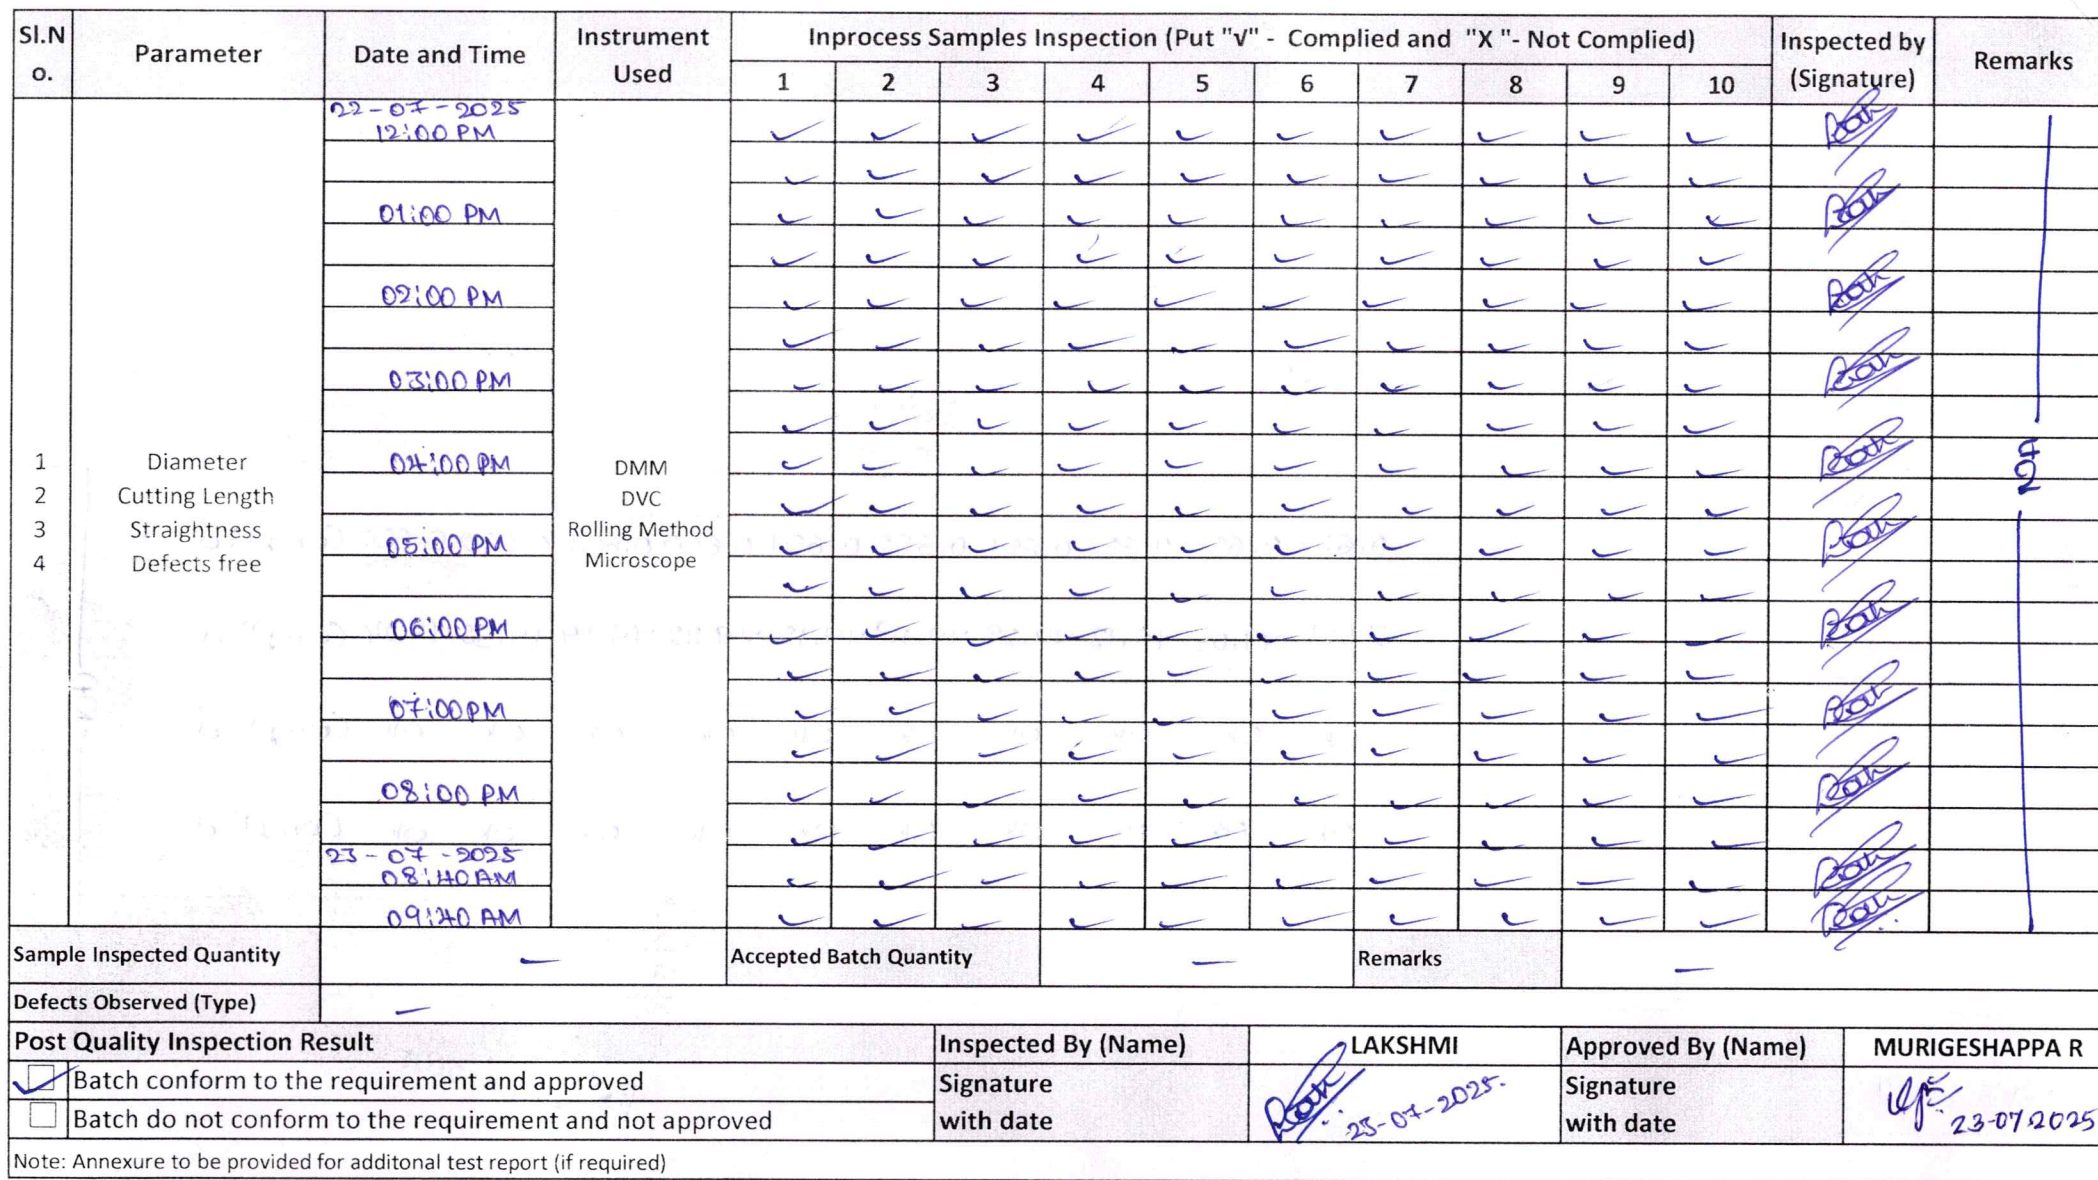 Sl.No. Parameter Date and Time Instrument Used Inprocess Samples Inspection (Put "√" - Complied and "X "- Not Complied) Inspected by (Signature) Remarks
1 2 3 4 5 6 7 8 9 10
22-07-2025
12:00 PM ✓ ✓ ✓ ✓ ✓ ✓ ✓ ✓ ✓ ✓
✓ ✓ ✓ ✓ ✓ ✓ ✓ ✓ ✓ ✓
01:00 PM ✓ ✓ ✓ ✓ ✓ ✓ ✓ ✓ ✓ ✓
✓ ✓ ✓ ✓ ✓ ✓ ✓ ✓ ✓ ✓
02:00 PM ✓ ✓ ✓ ✓ ✓ ✓ ✓ ✓ ✓ ✓
✓ ✓ ✓ ✓ ✓ ✓ ✓ ✓ ✓ ✓
03:00 PM ✓ ✓ ✓ ✓ ✓ ✓ ✓ ✓ ✓ ✓
✓ ✓ ✓ ✓ ✓ ✓ ✓ ✓ ✓ ✓
1 Diameter 04:00 PM DMM ✓ ✓ ✓ ✓ ✓ ✓ ✓ ✓ ✓ ✓
2 Cutting Length DVC ✓ ✓ ✓ ✓ ✓ ✓ ✓ ✓ ✓ ✓
3 Straightness 05:00 PM Rolling Method ✓ ✓ ✓ ✓ ✓ ✓ ✓ ✓ ✓ ✓
4 Defects free Microscope ✓ ✓ ✓ ✓ ✓ ✓ ✓ ✓ ✓ ✓
06:00 PM ✓ ✓ ✓ ✓ ✓ ✓ ✓ ✓ ✓ ✓
✓ ✓ ✓ ✓ ✓ ✓ ✓ ✓ ✓ ✓
07:00 PM ✓ ✓ ✓ ✓ ✓ ✓ ✓ ✓ ✓ ✓
✓ ✓ ✓ ✓ ✓ ✓ ✓ ✓ ✓ ✓
08:00 PM ✓ ✓ ✓ ✓ ✓ ✓ ✓ ✓ ✓ ✓
✓ ✓ ✓ ✓ ✓ ✓ ✓ ✓ ✓ ✓
23-07-2025
08:40 AM ✓ ✓ ✓ ✓ ✓ ✓ ✓ ✓ ✓ ✓
09:40 AM ✓ ✓ ✓ ✓ ✓ ✓ ✓ ✓ ✓ ✓
Sample Inspected Quantity — Accepted Batch Quantity — Remarks —
Defects Observed (Type) —
Post Quality Inspection Result Inspected By (Name) LAKSHMI Approved By (Name) MURIGESHAPPA R
✓ Batch conform to the requirement and approved Signature with date 23-07-2025. Signature with date 23-07-2025
Batch do not conform to the requirement and not approved
Note: Annexure to be provided for additonal test report (if required)